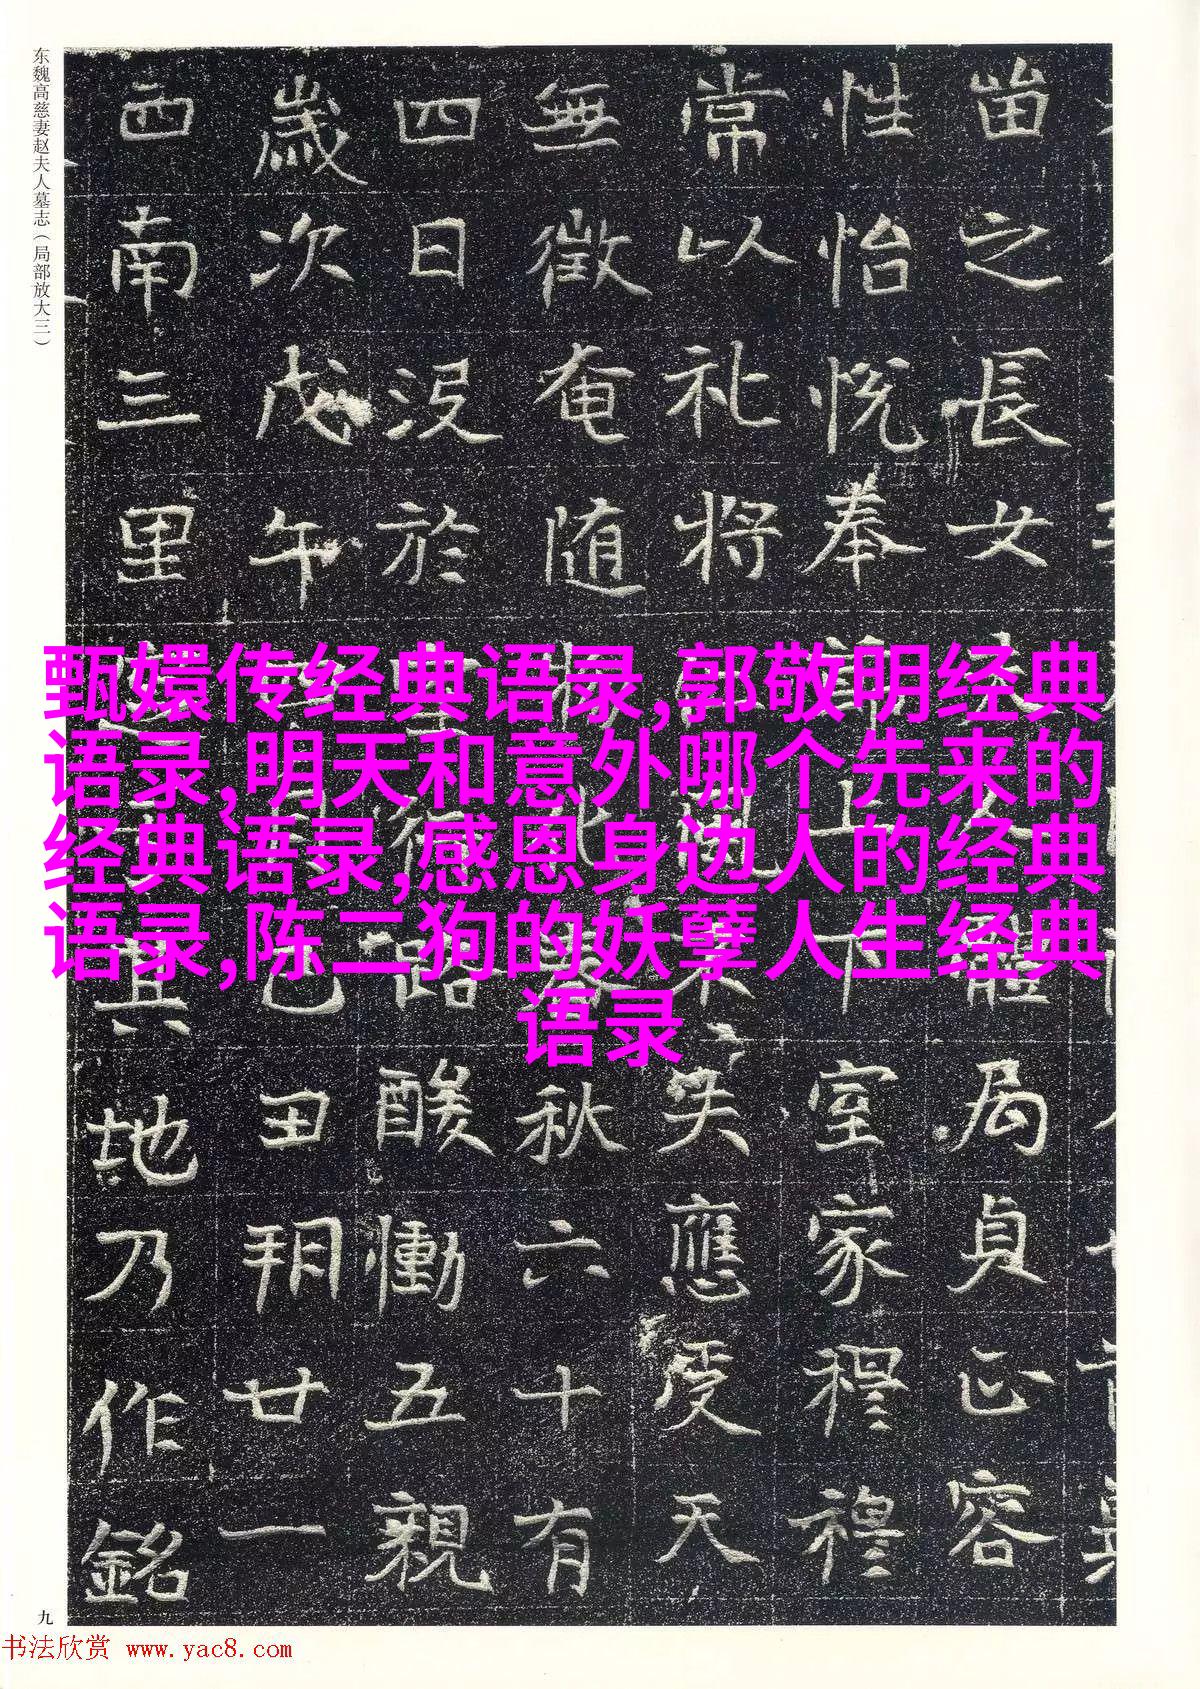 东魏高慈妻赵夫人墓志（局部放大三）
苗之長女體局貞正容
性怡悦奉上下室家穆穆
常以礼将風失應受天
無徵奄随化春秋六十有
四日没於行路酸慟五親
歲次戊午己丑朔廿一
西南三里其地乃作銘
甄嬛传经典语录,郭敬明经典
语录,明天和意外哪个先来的
经典语录,感恩身边人的经典
语录,陈二狗的妖孽人生经典
语录
九
书法欣赏 www.yac8.com